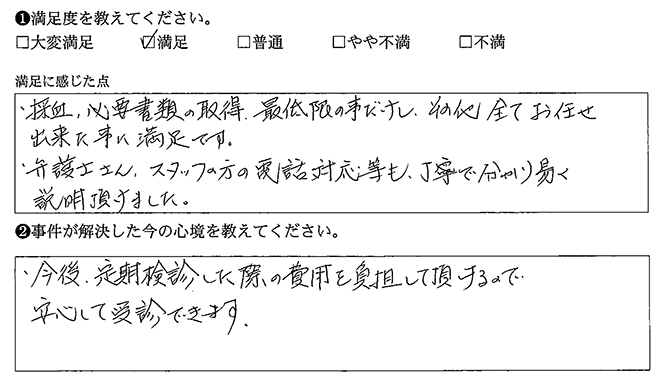 ❶満足度を教えてください。
□大変満足 ☑満足 □普通 □やや不満 □不満
満足に感じた点
・採血、必要書類の取得、最低限の事だけし、その他全てお任せ
出来た事に満足です。
・弁護士さん、スタッフの方の電話対応等も、丁寧で分かり易く
説明頂きました。
❷事件が解決した今の心境を教えてください。
・今後、定期検診した際の費用を負担して頂けるので
安心して受診できます。